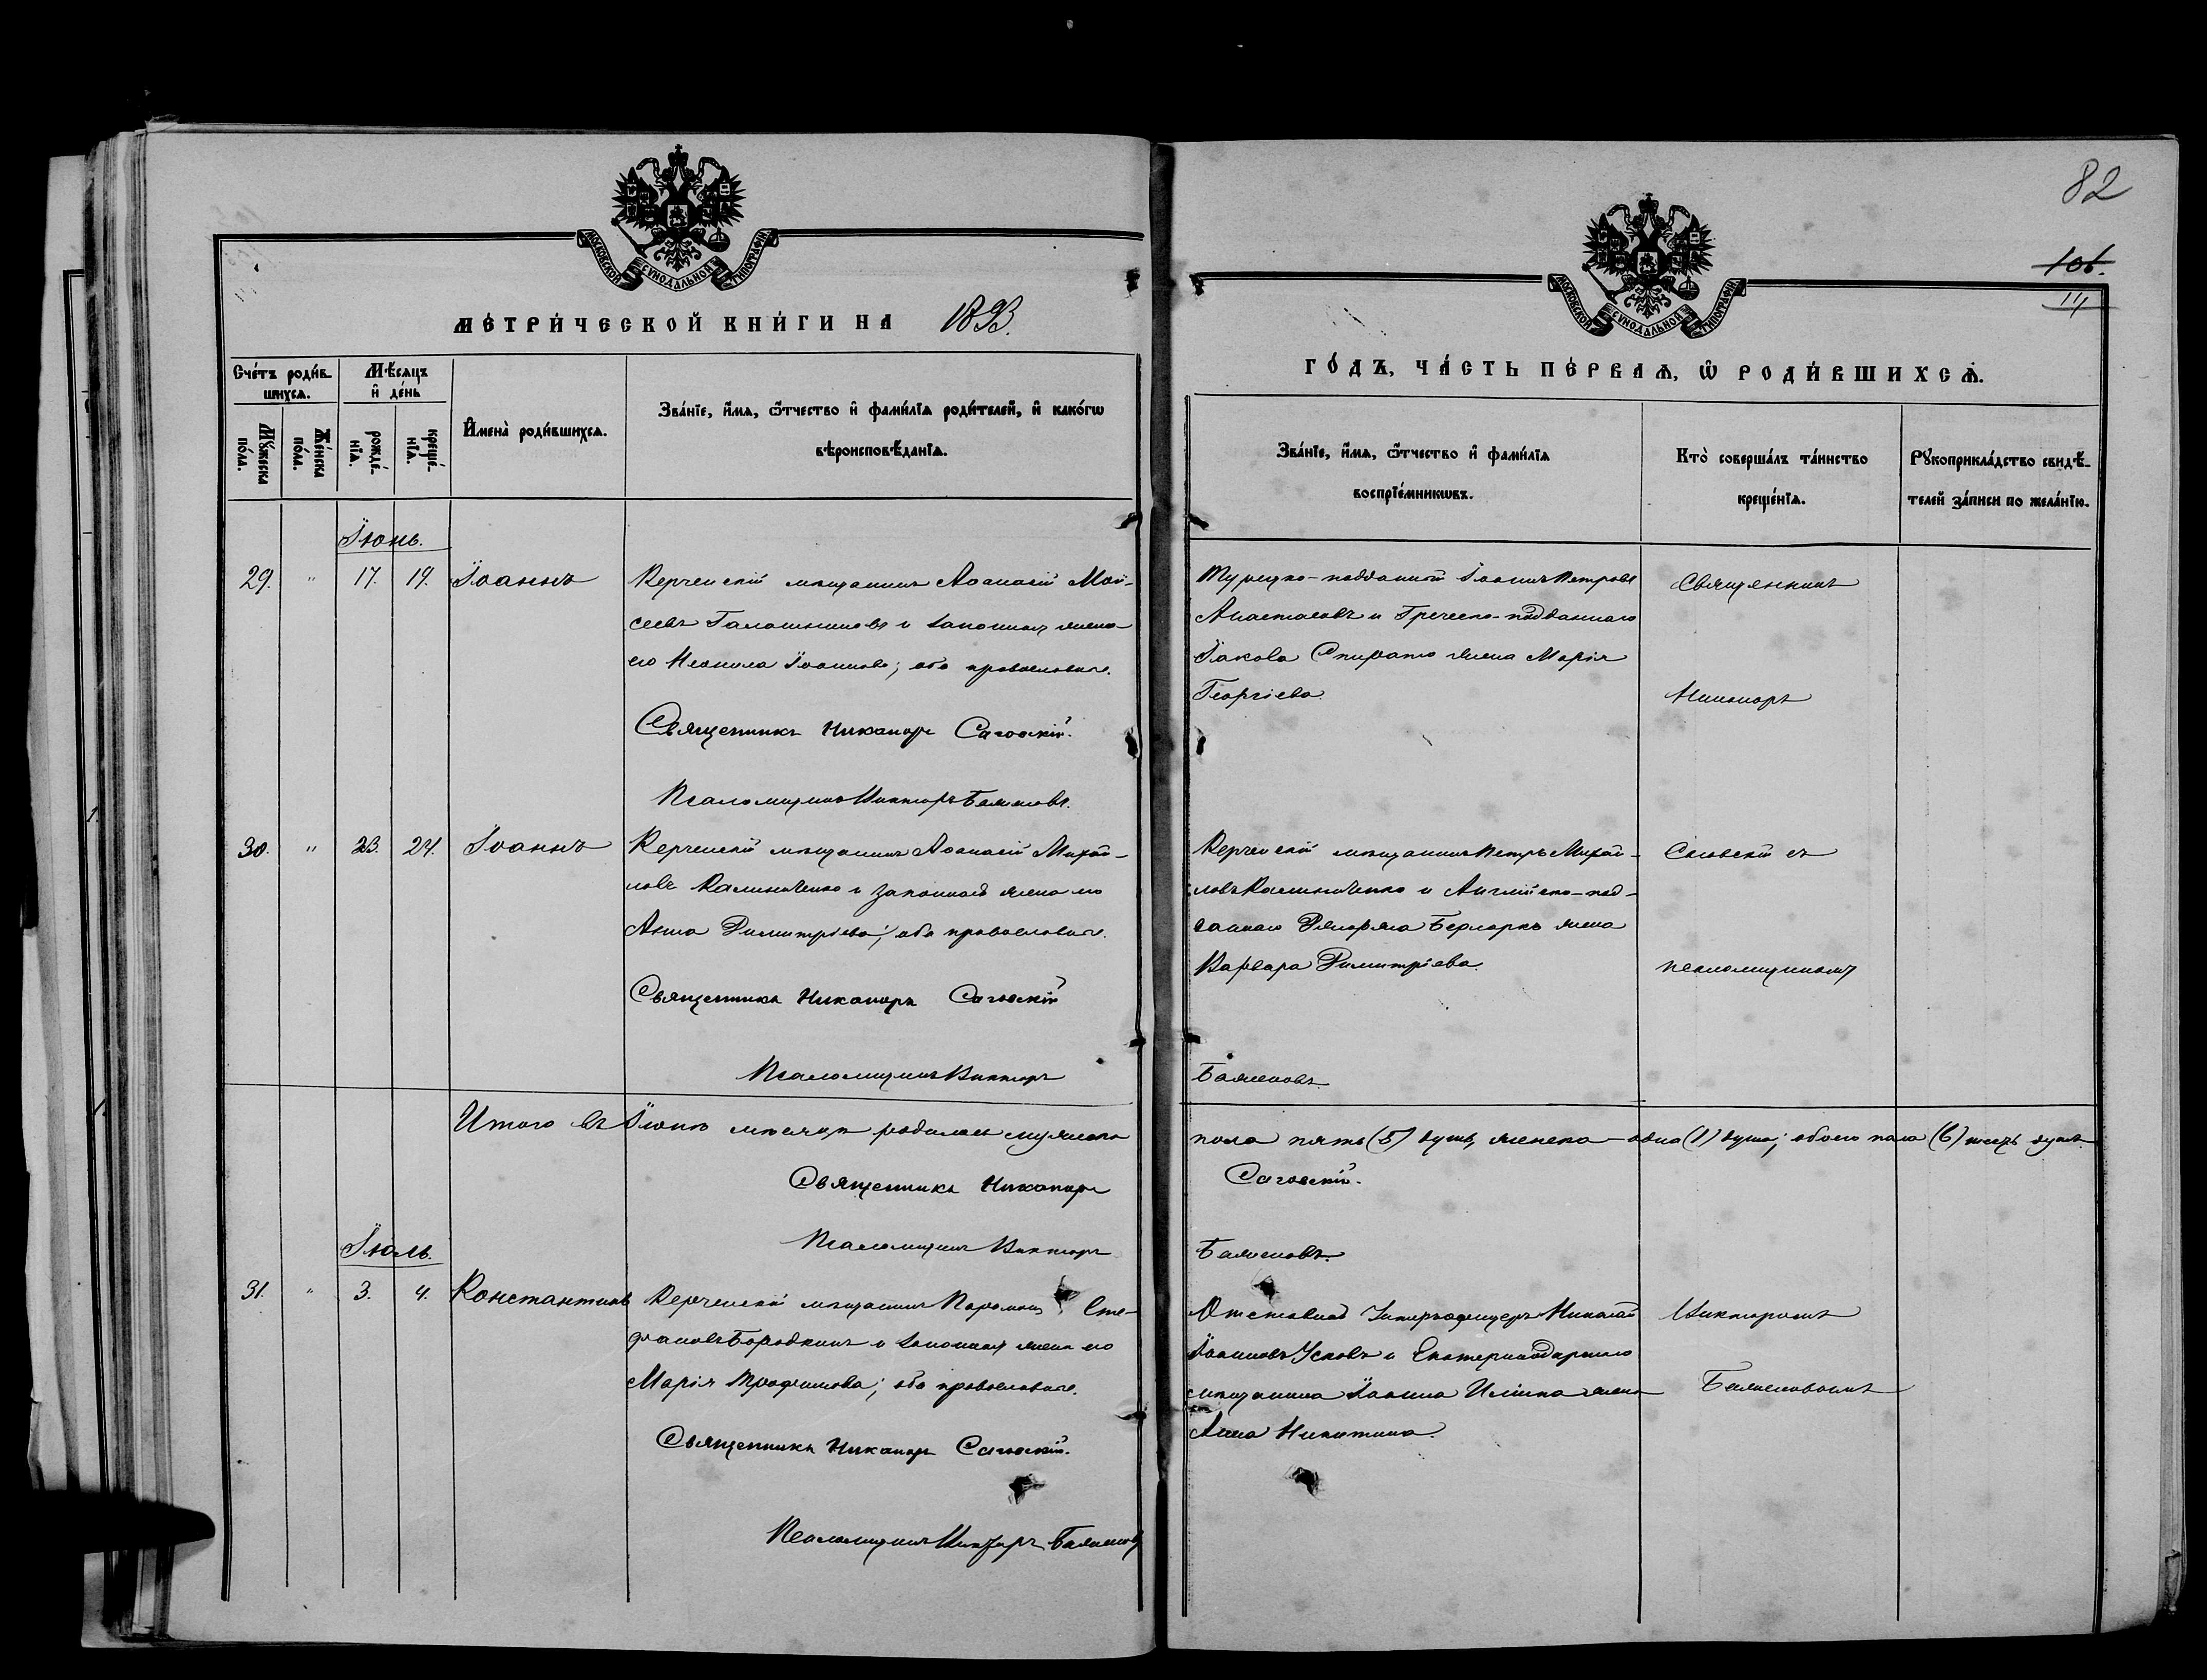 82
106.
14
МОСКОВСКОЙ СѴНОДАЛЬНОЙ ТИПОГРАФІИ
МОСКОВСКОЙ СѴНОДАЛЬНОЙ ТИПОГРАФІИ
МЕ́ТРИ́ЧЕСКОЙ КНИ́ГИ НА 1893.
ГО́ДЪ, ЧА́СТЬ ПЕ́РВАѦ, Ѡ҆ РОДИ́ВШИХСѦ.
Сче́тъ роди́вшихсѧ.
Мѣ́сѧцъ и҆ де́нь
Мꙋ́жеска по́ла.
Же́нска по́ла.
рожде́нїѧ.
креще́нїѧ.
И҆мена̀ роди́вшихсѧ.
Зва́нїе, и҆́мѧ, ѻ҆́тчество и҆ фами́лїѧ роди́телей, и҆ како́гѡ
вѣроисповѣ́данїѧ.
Зва́нїе, и҆́мѧ, ѻ҆́тчество и҆ фами́лїѧ
воспрїе́мникѡвъ.
Кто̀ соверша́лъ та́инство
креще́нїѧ.
Рꙋкоприкла́дство свидѣ́-
телей за́писи по жела́нїю.
Іюнь.
29. " 17. 19. Іоаннъ
Керченскій мѣщанинъ Аѳанасій Мои-
сеевъ и законная жена
его Неонила Іоаннова; оба православные.
Священникъ Никаноръ Саговскій.
Псаломщикъ Викторъ Баженовъ.
Турецко-подданный Іоаннъ Петровъ
Анастасовъ и Греческо-подданнаго
Іакова Спирато жена Марія
Георгіева.
Священникъ
Никаноръ
30. " 23. 24. Іоаннъ
Керченскій мѣщанинъ Аѳанасій Михай-
ловъ Калиниченко и законная жена его
Анна Димитріева; оба православные.
Священникъ Никаноръ Саговскій
Псаломщикъ Викторъ
Керченскій мѣщанинъ Петръ Михай-
ловъ Калиниченко и Англійско-под-
даннаго жена
Варвара Димитріева.
Баженовъ.
Саговскій съ
псаломщикомъ
Итого въ Іюнѣ мѣсяцѣ родилось мужеска
пола пять (5) душъ, женска - одна (1) душа; обоего пола (6) шесть душъ.
Священникъ Никаноръ
Саговскій.
Псаломщикъ Викторъ
Баженовъ.
Іюль.
31. " 3. 4. Константинъ
Керченскій мѣщанинъ Парамонъ Сте-
фановъ Бородкинъ и законная жена его
Марія Трофимова; оба православные.
Священникъ Никаноръ Саговскій.
Псаломщикъ Викторъ Баженовъ
Отставной Унтеръ-офицеръ Николай
Іоанновъ Усковъ и Екатеринодарскаго
мѣщанина Іоанна жена
Анна Никитина.
Викторомъ
Баженовымъ